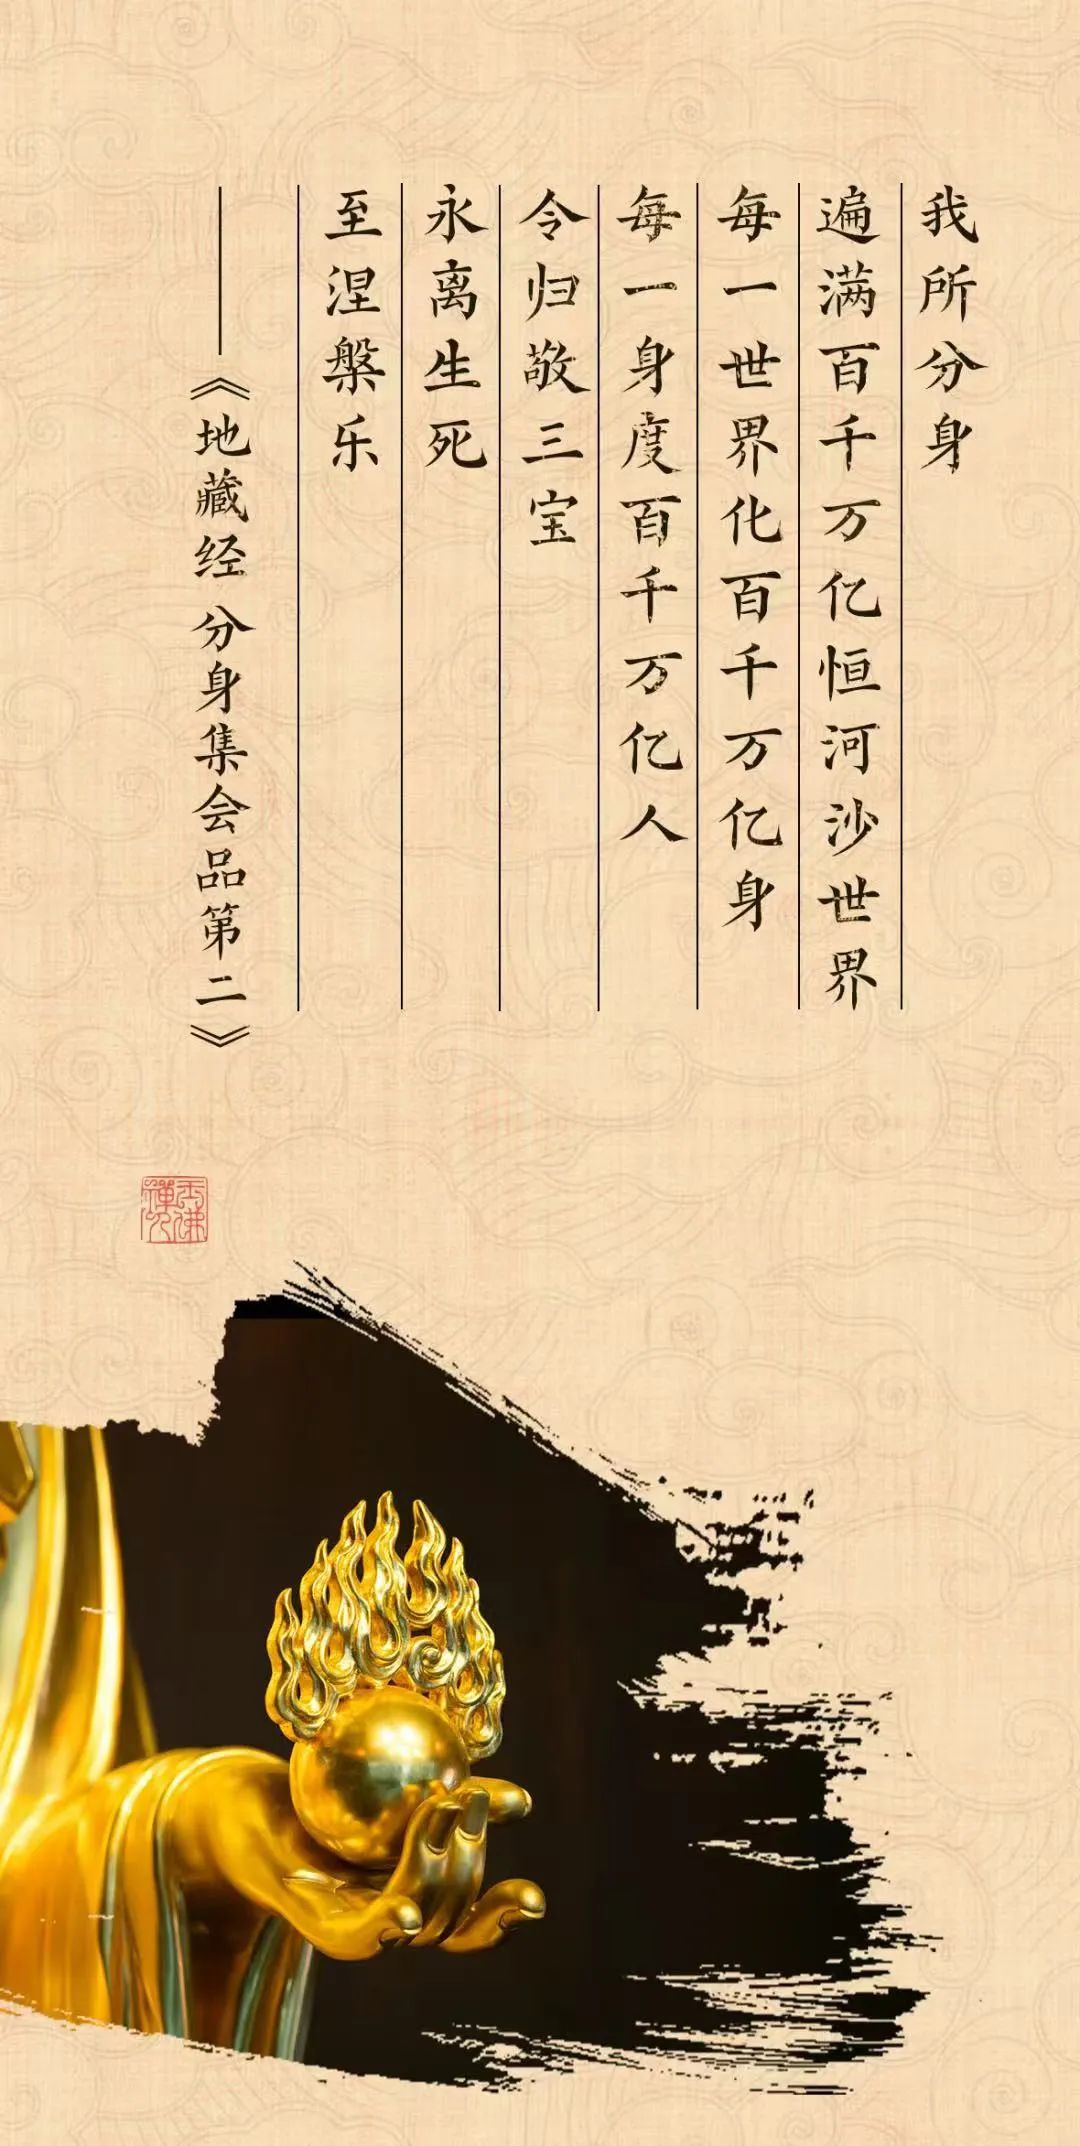 我所分身
遍满百千万亿恒河沙世界
每一世界化百千万亿身
每一身度百千万亿人
令归敬三宝
永离生死
至涅槃乐
——《地藏经 分身集会品第二》